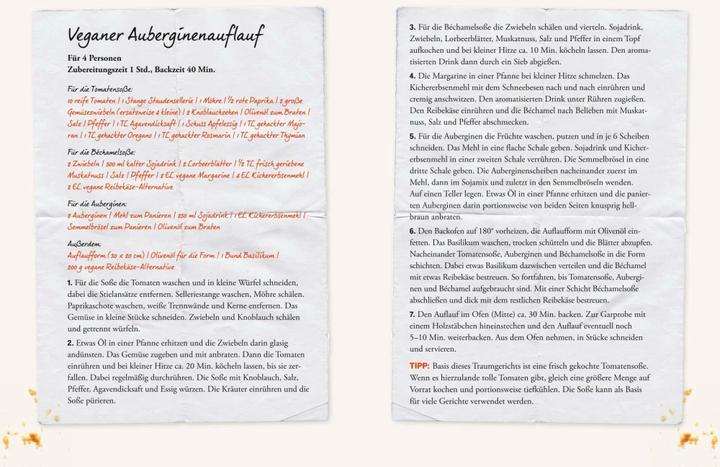 Veganer Auberginenauflauf
Für 4 Personen
Zubereitungszeit 1 Std., Backzeit 40 Min.
Für die Tomatensoße:
10 reife Tomaten | 1 Stange Staudensellerie | 1 Möhre | ½ rote Paprika | 2 große
Gemüsezwiebeln (ersatzweise 4 kleine) | 2 Knoblauchzehen | Olivenöl zum Braten |
Salz | Pfeffer | 1 TL Agavendicksaft | 1 Schuss Apfelessig | 1 TL gehackter Majo-
ran | 1 TL gehackter Oregano | 1 TL gehackter Rosmarin | 1 TL gehackter Thymian
Für die Béchamelsoße:
2 Zwiebeln | 500 ml kalter Sojadrink | 2 Lorbeerblätter | ½ TL frisch geriebene
Muskatnuss | Salz | Pfeffer | 2 EL vegane Margarine | 4 EL Kichererbsenmehl |
2 EL vegane Reibekäse-Alternative
Für die Auberginen:
2 Auberginen | Mehl zum Panieren | 250 ml Sojadrink | 1 EL Kichererbsenmehl |
Semmelbrösel zum Panieren | Olivenöl zum Braten
Außerdem:
Auflaufform (30 x 20 cm) | Olivenöl für die Form | 1 Bund Basilikum |
200 g vegane Reibekäse-Alternative
1. Für die Soße die Tomaten waschen und in kleine Würfel schneiden,
dabei die Stielansätze entfernen. Selleriestange waschen, Möhre schälen.
Paprikaschote waschen, weiße Trennwände und Kerne entfernen. Das
Gemüse in kleine Stücke schneiden. Zwiebeln und Knoblauch schälen
und getrennt würfeln.
2. Etwas Öl in einer Pfanne erhitzen und die Zwiebeln darin glasig
andünsten. Das Gemüse zugeben und mit anbraten. Dann die Tomaten
einrühren und bei kleiner Hitze ca. 20 Min. köcheln lassen, bis sie zer-
fallen. Dabei regelmäßig durchrühren. Die Soße mit Knoblauch, Salz,
Pfeffer, Agavendicksaft und Essig würzen. Die Kräuter einrühren und die
Soße pürieren.
3. Für die Béchamelsoße die Zwiebeln schälen und vierteln. Sojadrink,
Zwiebeln, Lorbeerblätter, Muskatnuss, Salz und Pfeffer in einem Topf
aufkochen und bei kleiner Hitze ca. 10 Min. köcheln lassen. Den aroma-
tisierten Drink dann durch ein Sieb abgießen.
4. Die Margarine in einer Pfanne bei kleiner Hitze schmelzen. Das
Kichererbsenmehl mit dem Schneebesen nach und nach einrühren und
cremig anschwitzen. Den aromatisierten Drink unter Rühren zugießen.
Den Reibekäse einrühren und die Béchamel nach Belieben mit Muskat-
nuss, Salz und Pfeffer abschmecken.
5. Für die Auberginen die Früchte waschen, putzen und in je 6 Scheiben
schneiden. Das Mehl in eine flache Schale geben. Sojadrink und Kicher-
erbsenmehl in einer zweiten Schale verrühren. Die Semmelbrösel in eine
dritte Schale geben. Die Auberginenscheiben nacheinander zuerst im
Mehl, dann im Sojamix und zuletzt in den Semmelbröseln wenden.
Auf einen Teller legen. Etwas Öl in einer Pfanne erhitzen und die panier-
ten Auberginen darin portionsweise von beiden Seiten knusprig hell-
braun anbraten.
6. Den Backofen auf 180° vorheizen, die Auflaufform mit Olivenöl ein-
fetten. Das Basilikum waschen, trocken schütteln und die Blätter abzupfen.
Nacheinander Tomatensoße, Auberginen und Béchamelsoße in die Form
schichten. Dabei etwas Basilikum dazwischen verteilen und die Béchamel
mit etwas Reibekäse bestreuen. So fortfahren, bis Tomatensoße, Aubergi-
nen und Béchamel aufgebraucht sind. Mit einer Schicht Béchamelsoße
abschließen und dick mit dem restlichen Reibekäse bestreuen.
7. Den Auflauf im Ofen (Mitte) ca. 30 Min. backen. Zur Garprobe mit
einem Holzstäbchen hineinstechen und den Auflauf eventuell noch
5–10 Min. weiterbacken. Aus dem Ofen nehmen, in Stücke schneiden
und servieren.
TIPP: Basis dieses Traumgerichts ist eine frisch gekochte Tomatensoße.
Wenn es hierzulande tolle Tomaten gibt, gleich eine größere Menge auf
Vorrat kochen und portionsweise tiefkühlen. Die Soße kann als Basis
für viele Gerichte verwendet werden.